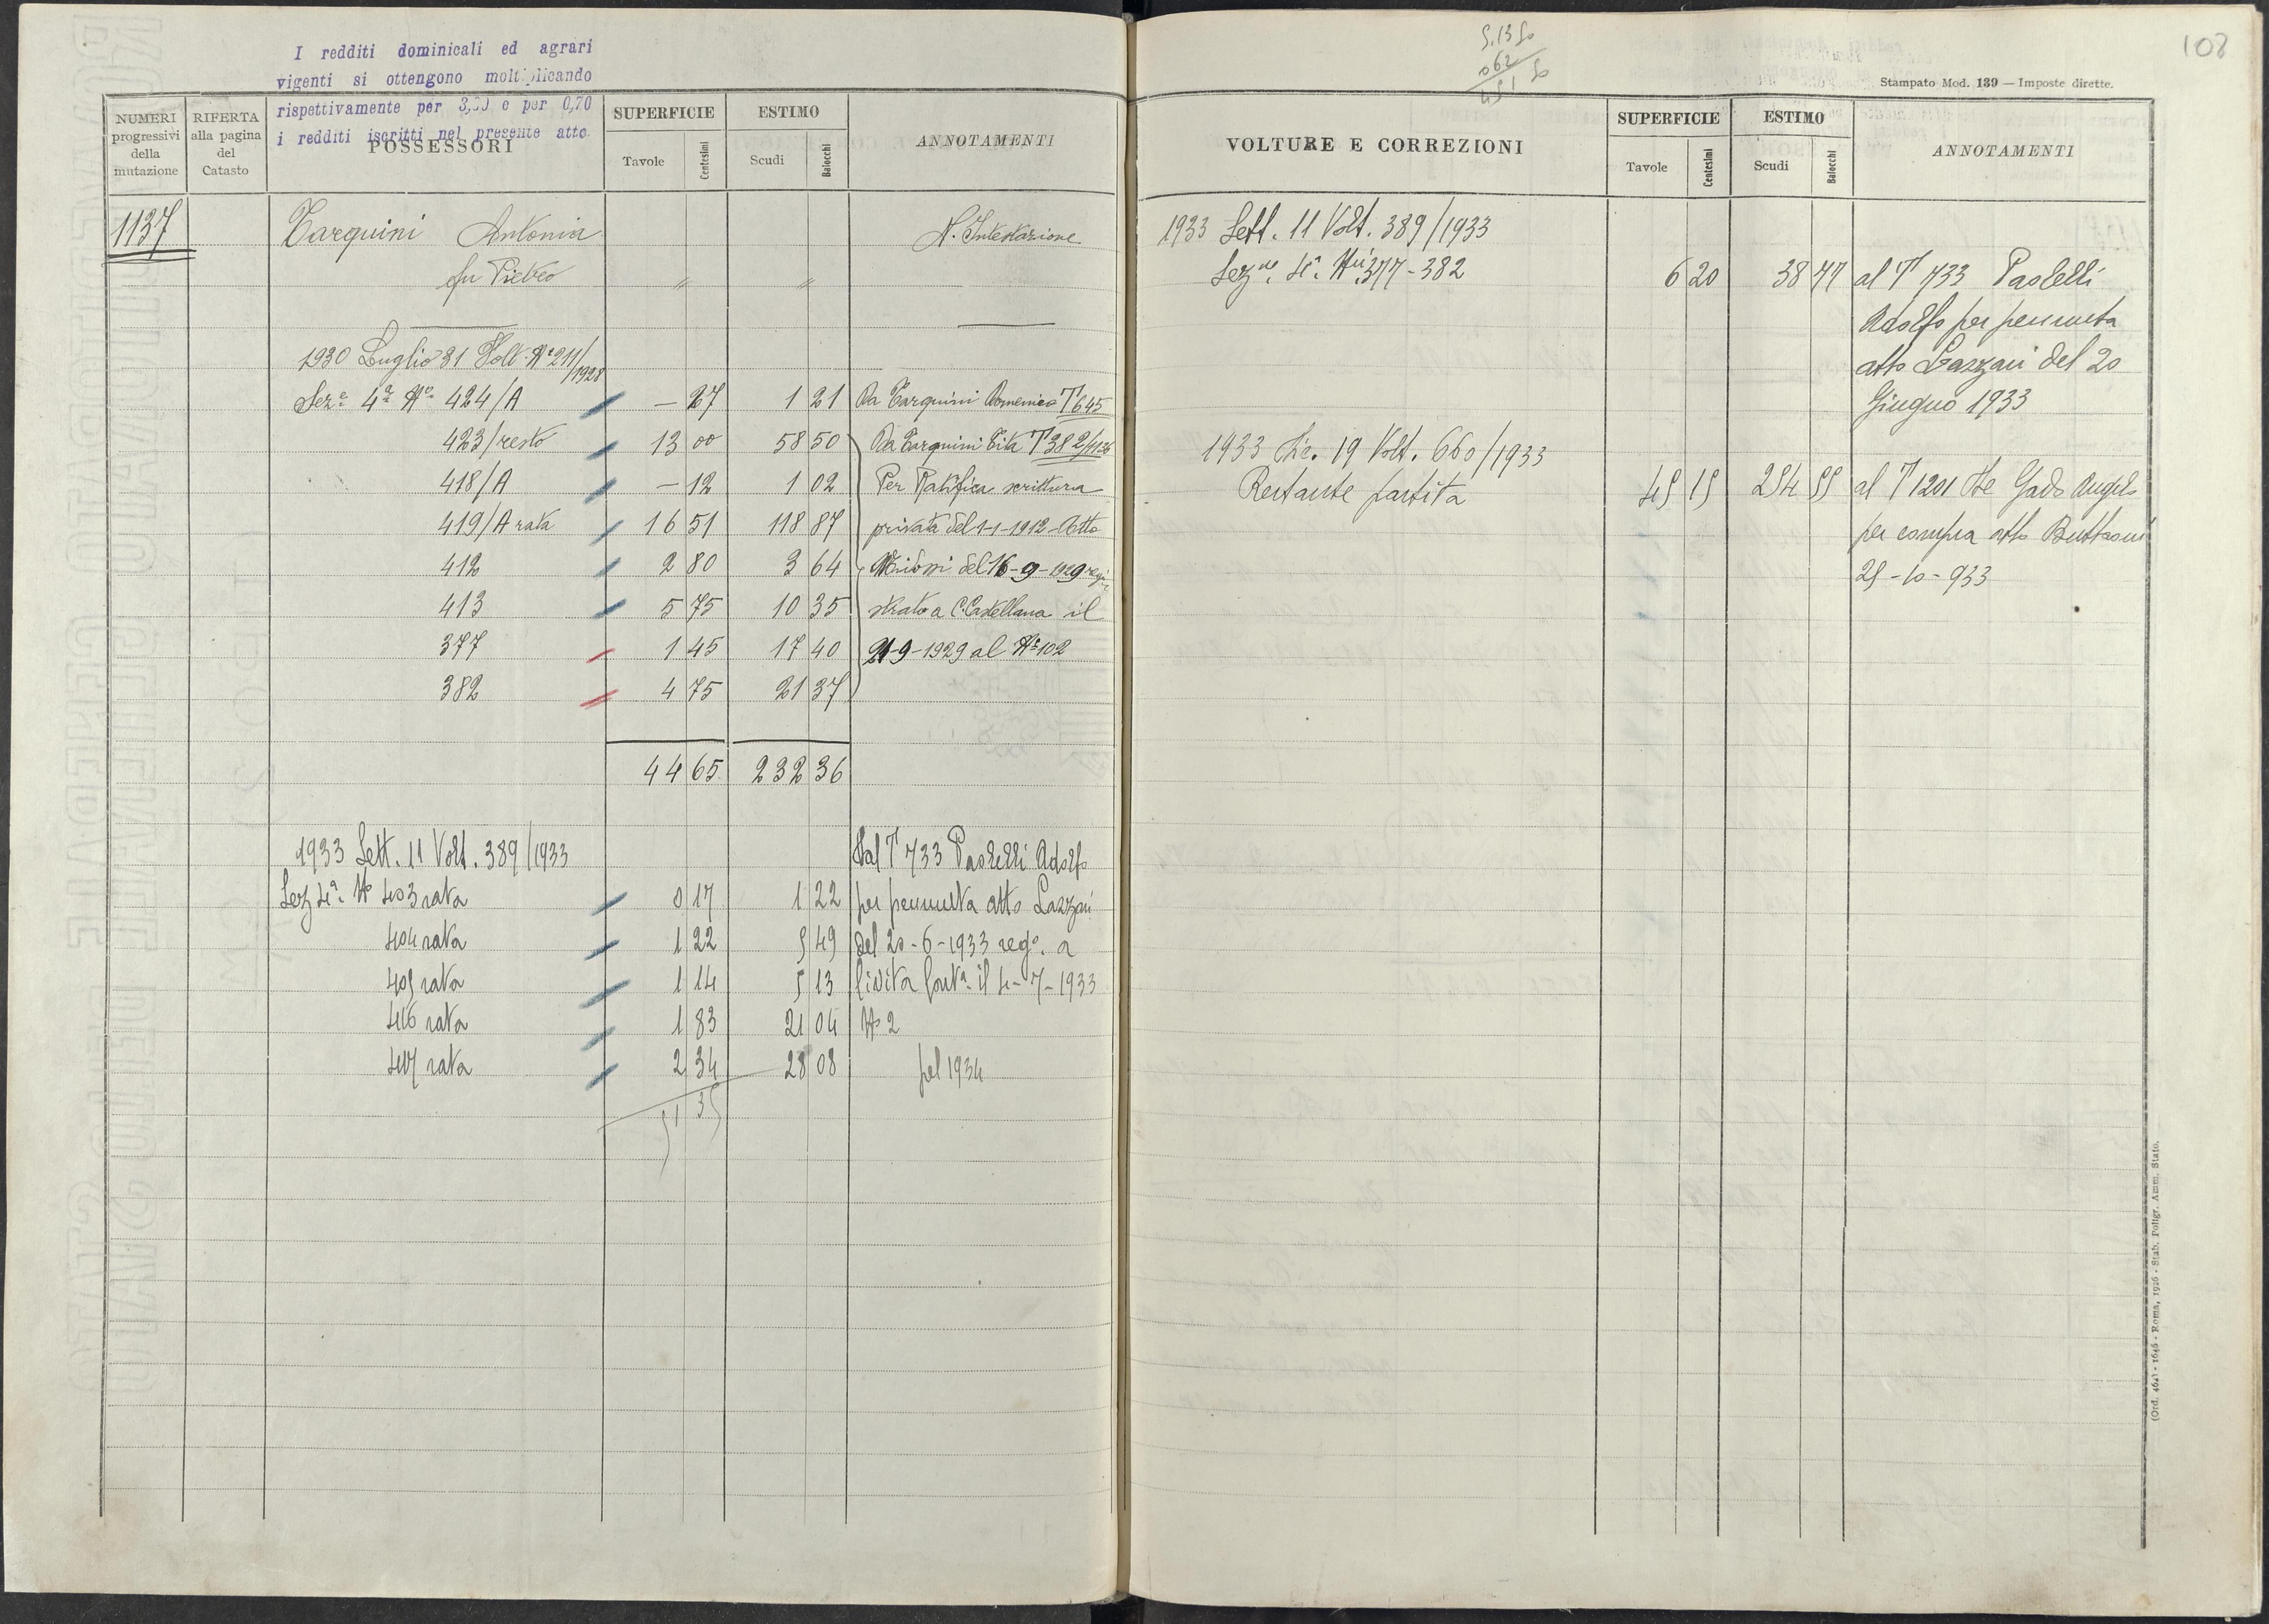 I redditi dominicali ed agrari
vigenti si ottengono moltiplicando
rispettivamente per 3,30 e per 0,70
i redditi iscritti nel presente atto.
NUMERI progressivi della mutazione
RIFERTA alla pagina del Catasto
POSSESSORI
SUPERFICIE
Tavole Centesimi
ESTIMO
Scudi Baiocchi
ANNOTAMENTI
1137 Tarquini Antonia N. Intestazione
fu Pietro " "
1930 Luglio 31 Volt. Nº 211/1928
Sezº 4ª Nº 424/A — 27 1 21 Da Tarquini Domenico T 645
423/resto 13 00 58 50 Da Tarquini Tita T 382/1126
418/A — 12 1 02 Per Ratifica scrittura
419/A rata 16 51 118 87 privata del 1-1-1912 - Atto
412 2 80 3 64 del 16-9-1929 regi
413 5 75 10 35 strato a C. Castellana il
377 1 45 17 40 21-9-1929 al Nº 102
382 4 75 21 37
44 65 232 36
1933 Sett. 11 Volt. 389/1933 Dal T 733 Pastelli Adolfo
Sez 4ª Nº 403 rata 0 17 1 22 per permuta atto Lazzari
404 rata 1 22 5 49 del 20-6-1933 regº. a
405 rata 1 14 5 13 Civita Castª il 4-7-1933
406 rata 1 83 21 04 Nº 2
407 rata 2 34 28 08 pel 1934
51 35
108
5.1350
062
451 50
Stampato Mod. 139 — Imposte dirette.
VOLTURE E CORREZIONI
SUPERFICIE
Tavole Centesimi
ESTIMO
Scudi Baiocchi
ANNOTAMENTI
1933 Sett. 11 Volt. 389/1933
Sezne. 4ª. Nri 377-382 6 20 38 77 al T 733 Pastelli
Adolfo per permuta
atto Lazzari del 20
Giugno 1933
1933 Dic. 19 Volt. 660/1933
Restante partita 45 15 254 55 al T 1201 De Gado Angelo
per compra atto Buttaoni
25-10-933
(Ord. 4641 - 1646 - Roma, 1926 - Stab. Poligr. Amm. Stato.